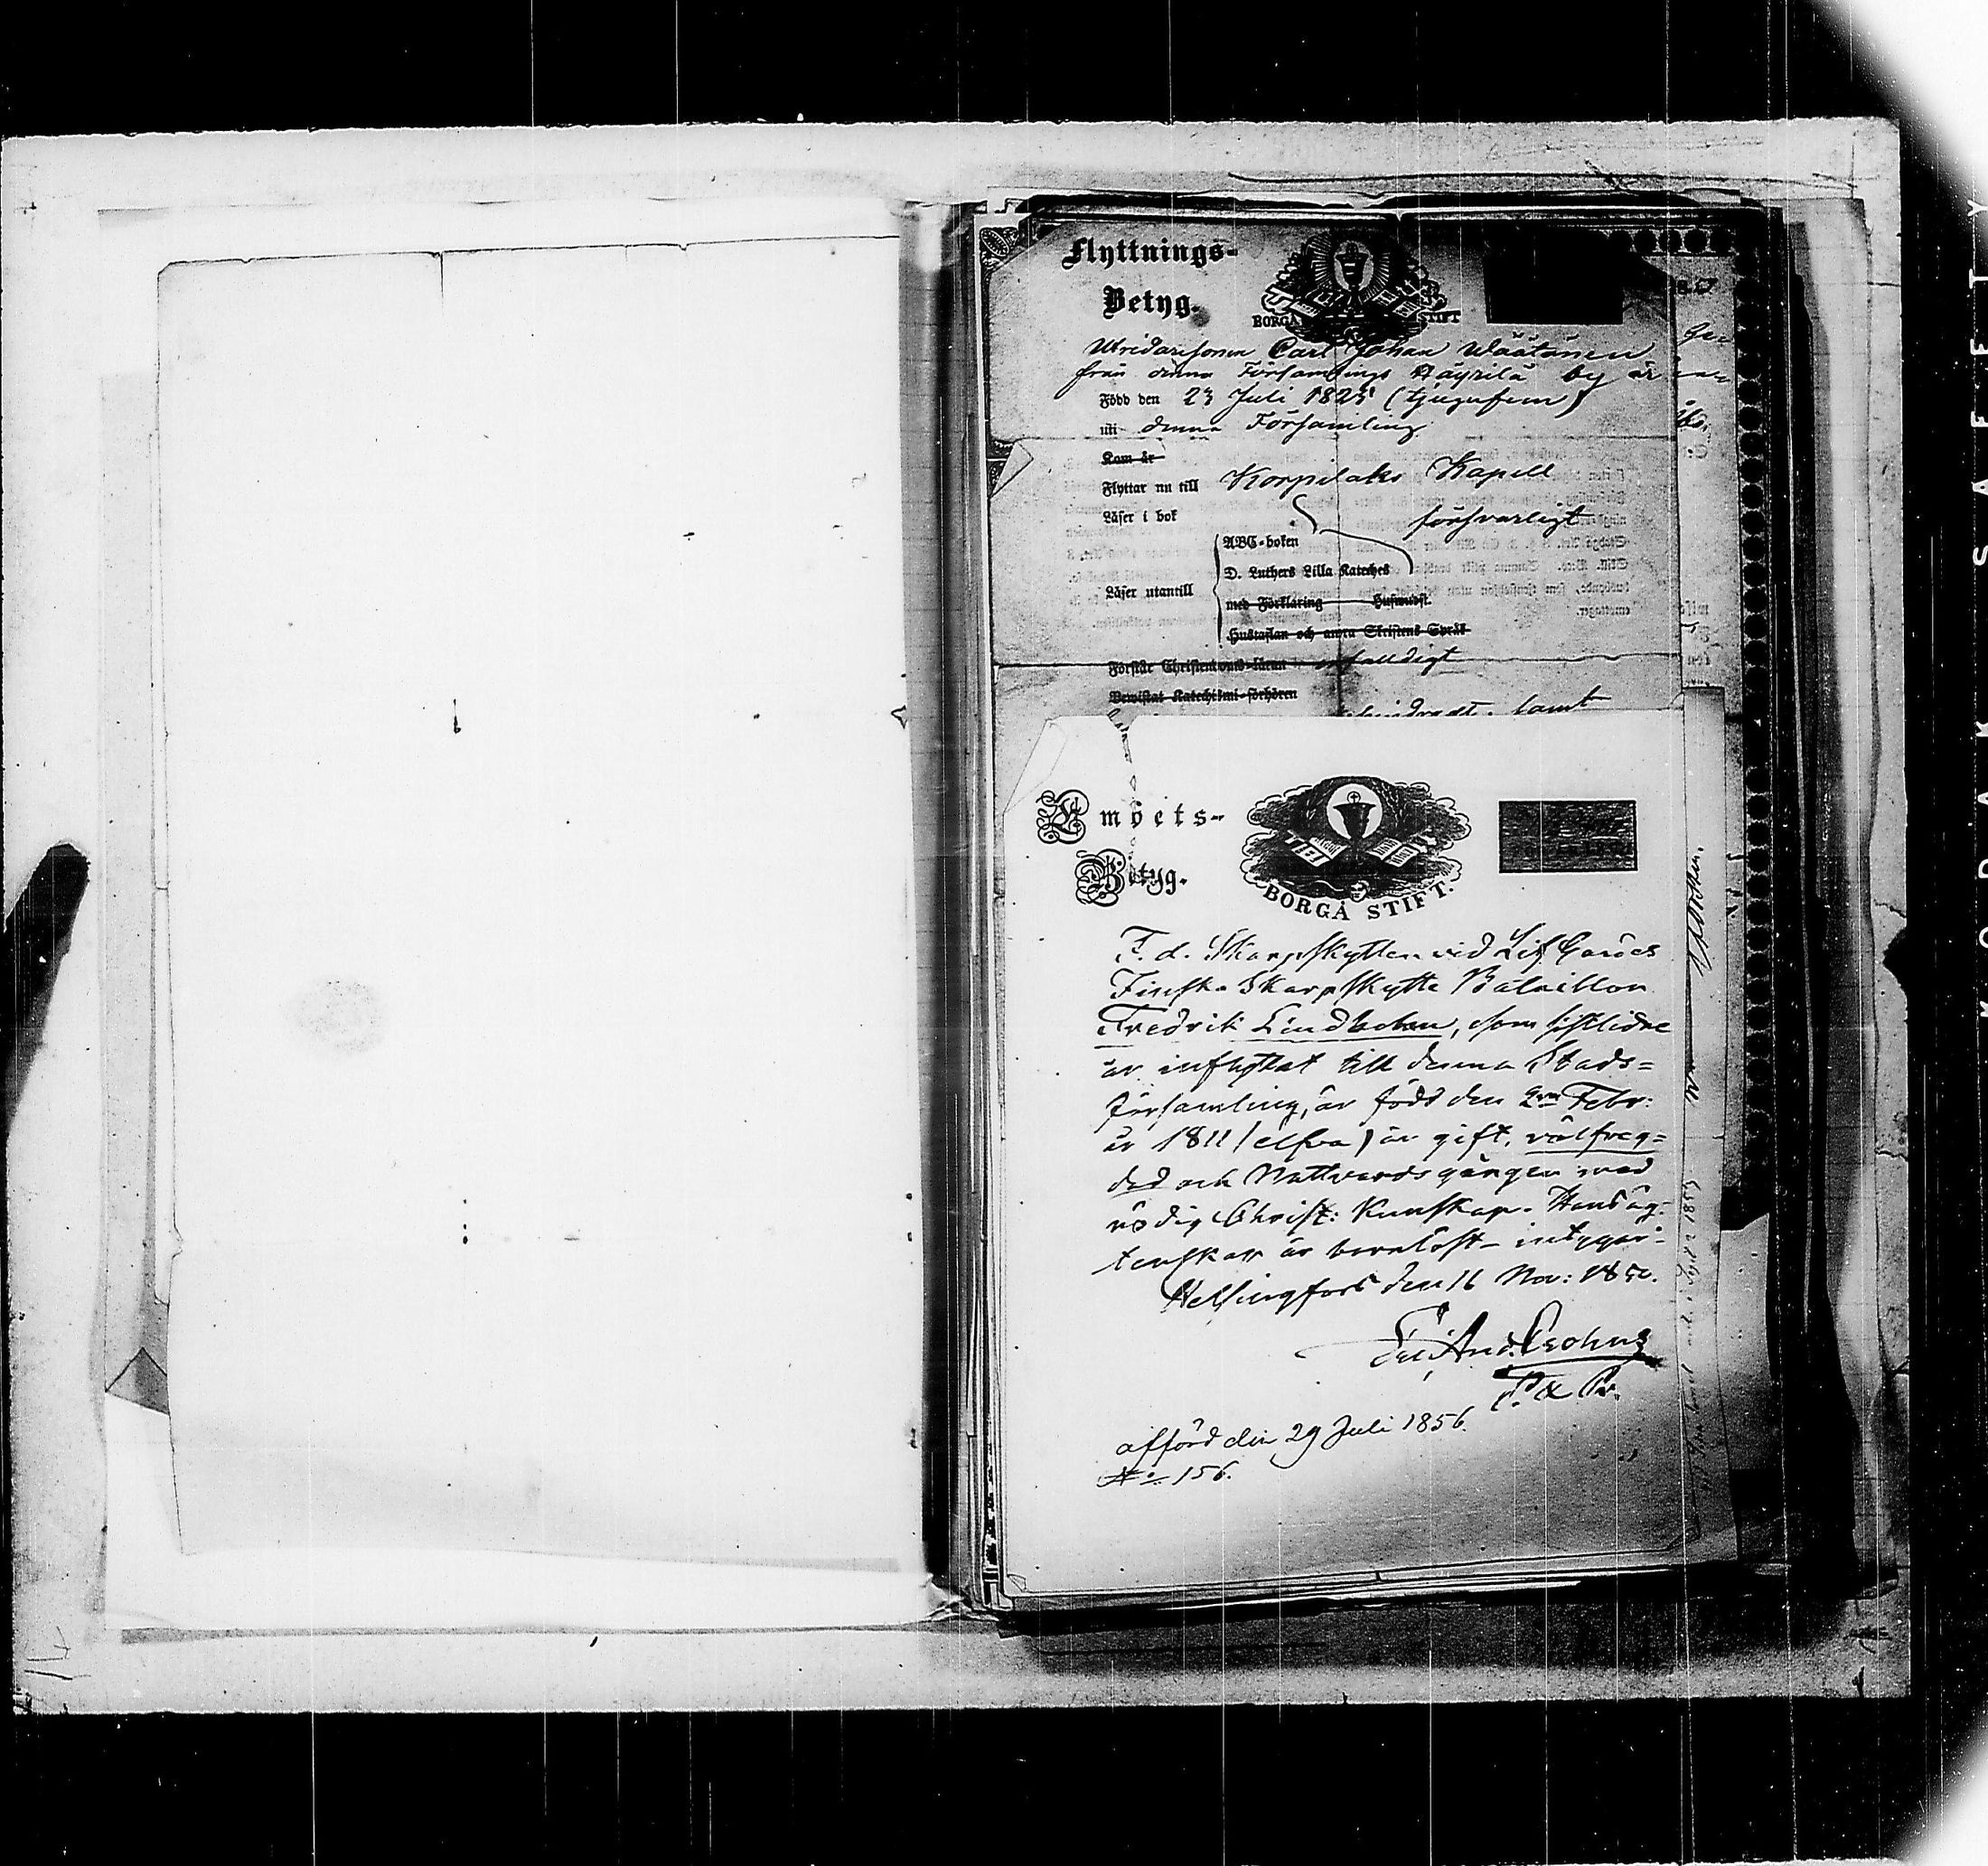 Flyttnings-
Betyg.
BORGÅ STIFT
Carl Johan Wäätänen
från denna Församlings Häyrilä by är
Född den 23 Juli 1825 (tjugufem)
uti denna Församling.
Kom år
Flyttar nu till Korpilaks Kapell
Läser i bok försvarligt
ABC-boken
D. Luthers Lilla Kateches
Läser utantill
med Förklaring Huswudst.
Hustaflan och andra Skriftens Språk
Förstår Christendoms-läran enfalldigt
Bewistat Katechismi-förhören
samt
Embets-
Betyg.
BORGÅ STIFT.
F. d. Skarpskytten vid Lif Gardes
Finska Skarpskytte Bataillon
Fredrik Lindholm, som sistlidne
år inflyttat till denna Stads=
församling, är född den 2dra Febr:
år 1811 (elfva) är gift, välfreg=
dad och Nattvardsgången med
nödig Christ: Kunskap. Hans äg:
tenskap är barnlöst - intygar:
Helsingfors den 16 Nov: 1850.
P. &
afförd den 29 Juli 1856.
No 156.
KODAK SAFETY